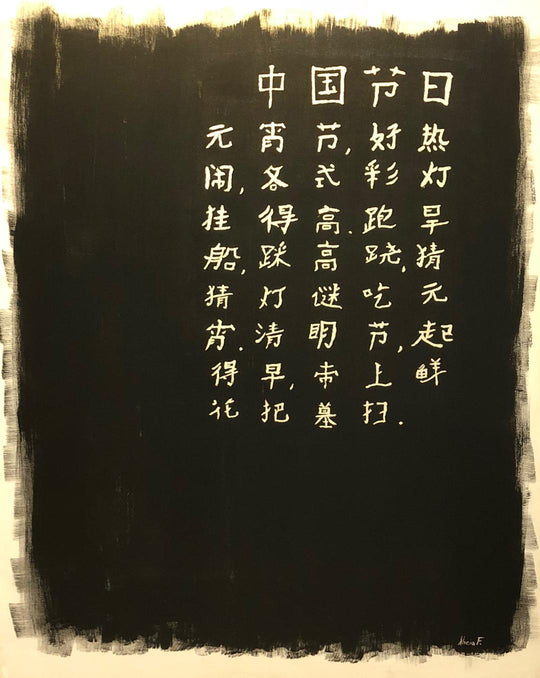 中国节日
元宵节,好热
闹,各式彩灯
挂得高.跑旱
船,踩高跷,猜
猜灯谜吃元
宵.清明节,起
得早,帝上鲜
花把墓扫.